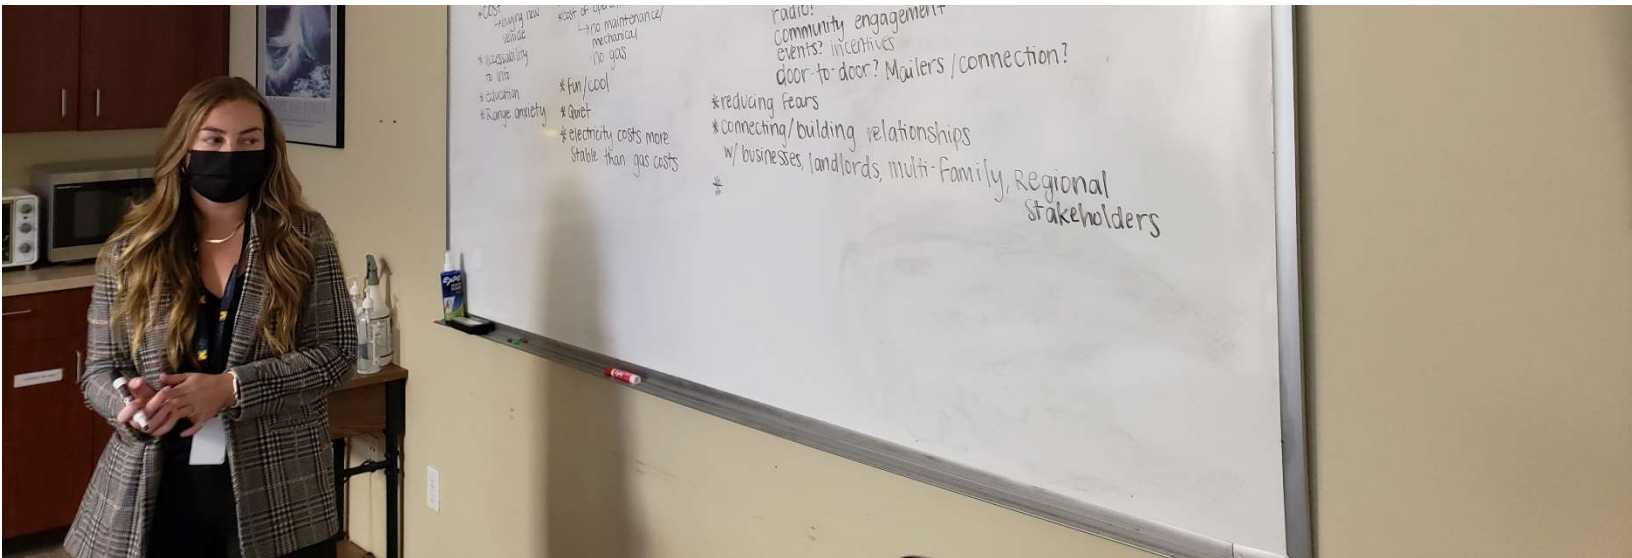 *cost
↳buying new
vehicle
*accessability
to info
*education
*Range anxiety
*cost of
↳no maintenance/
mechanical
no gas
*fun/cool
*Quiet
*electricity costs more
stable than gas costs
radio!
community engagement
events? incentives
door-to-door? Mailers/connection?
*reducing fears
*connecting/building relationships
w/ businesses, landlords, multi-family, Regional
Stakeholders
*
EXPO